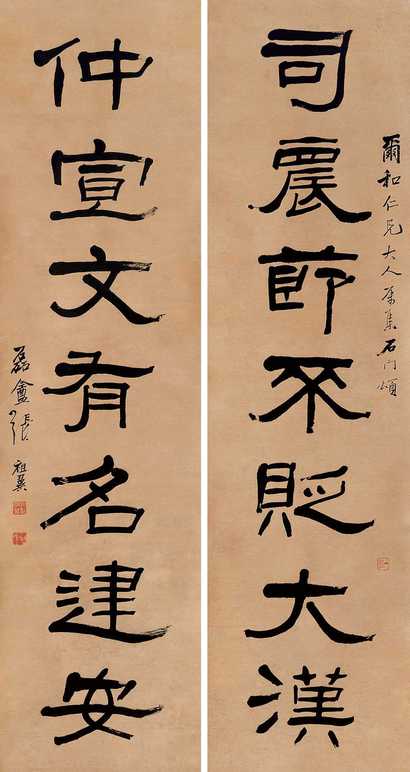 爾和仁兄大人屬集石門頌
司農節不貶大漢
仲宣文有名建安
磊盦張祖翼